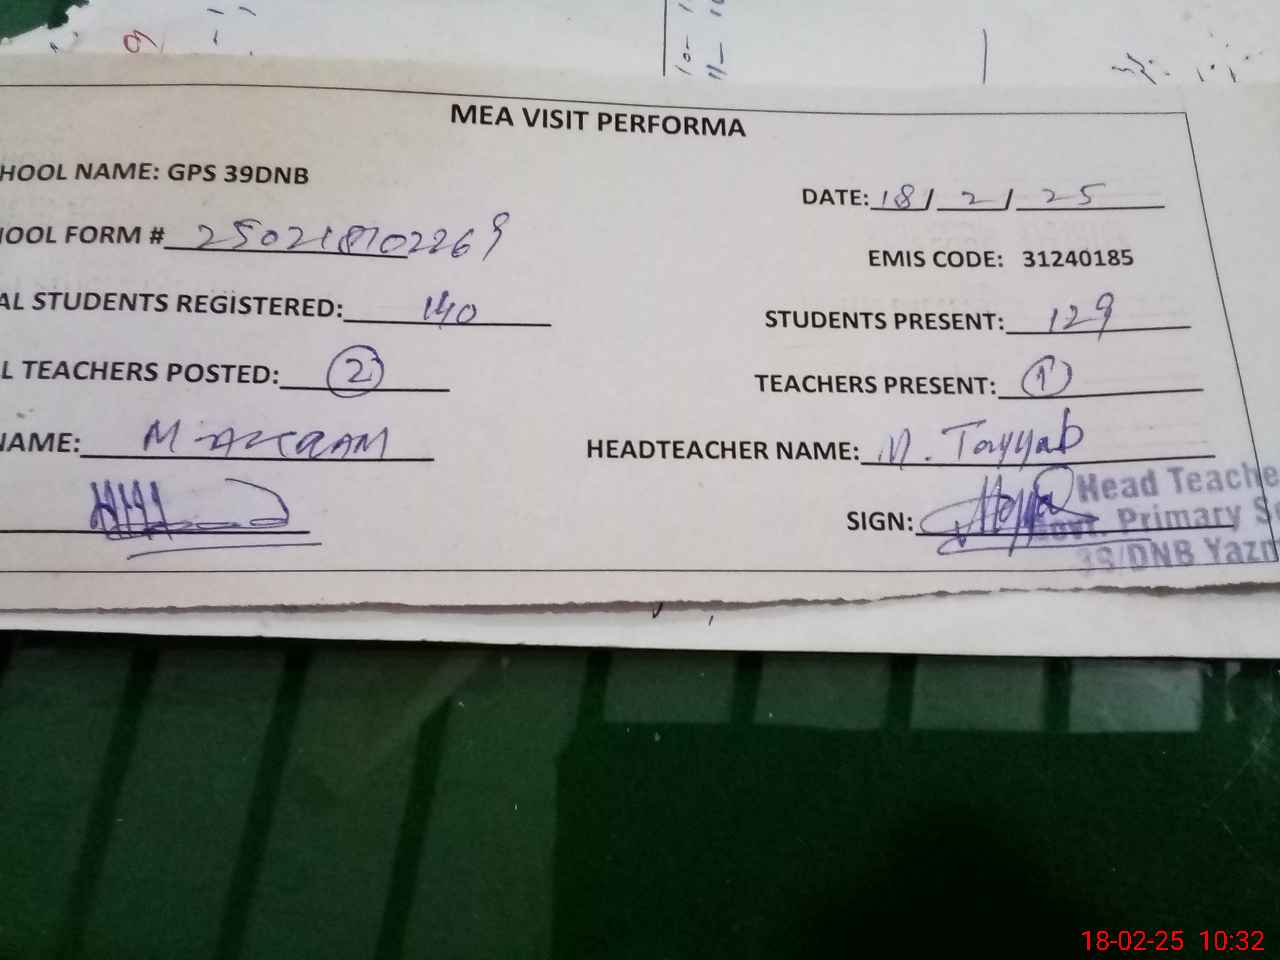 MEA VISIT PERFORMA
HOOL NAME: GPS 39DNB
DATE: 18/ 2 / 25
OOL FORM # 250218102269
EMIS CODE: 31240185
AL STUDENTS REGISTERED: 140
STUDENTS PRESENT: 129
L TEACHERS POSTED: 2
TEACHERS PRESENT: 1
NAME: M. AKRAM
HEADTEACHER NAME: M. Tayyab
SIGN:
Head Teache
Govt. Primary S
39/DNB Yazm
18-02-25 10:32